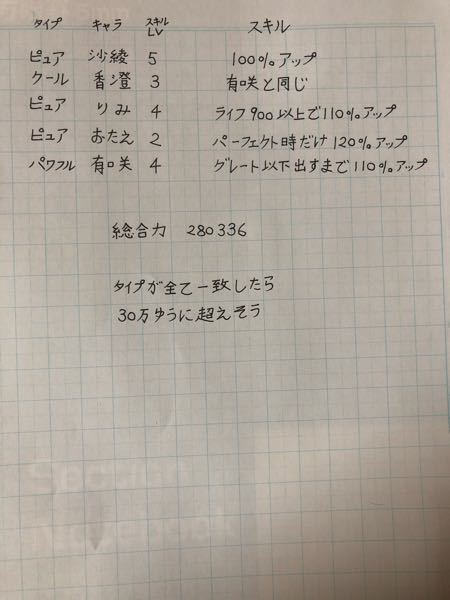 タイプ キャラ スキルLV スキル
ピュア 沙綾 5 100%アップ
クール 香澄 3 有咲と同じ
ピュア りみ 4 ライフ900以上で110%アップ
ピュア おたえ 2 パーフェクト時だけ120%アップ
パワフル 有咲 4 グレート以下出すまで110%アップ
総合力 280336
タイプが全て一致したら
30万ゆうに超えそう